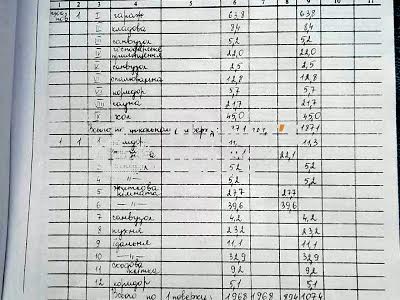 1 2 3 4 5 6 7 8 9 10 11
1 I гараж 63,8 63,8
II кладова 8,4 8,4
III санвузол 5,2 5,2
IV господарське приміщення 22,0 22,0
V санвузол 2,5 2,5
VI опалювальна 12,8 12,8
коридор 5,7 5,7
сауна 21,7 21,7
хол 45,0 45,0
187,1
1 1 1 11,3
22,1
5,2 5,2
4 —"— 5,2 5,2
5 житлова кімната 27,7 27,7
6 —"— 39,6 39,6
7 санвузол 4,2 4,2
8 кухня 23,2 23,2
9 їдальня 11,1 11,1
10 —"— 32,9 32,9
11 сходова клітка 9,2 9,2
12 коридор 5,1 5,1
Всього по 1 поверху: 196,8 196,8 89,4 107,4